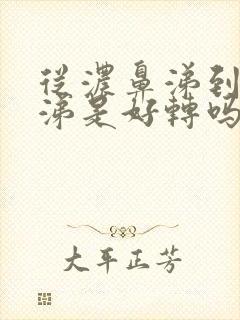 從濃鼻涕到
涕是好轉嗎
大平正芳